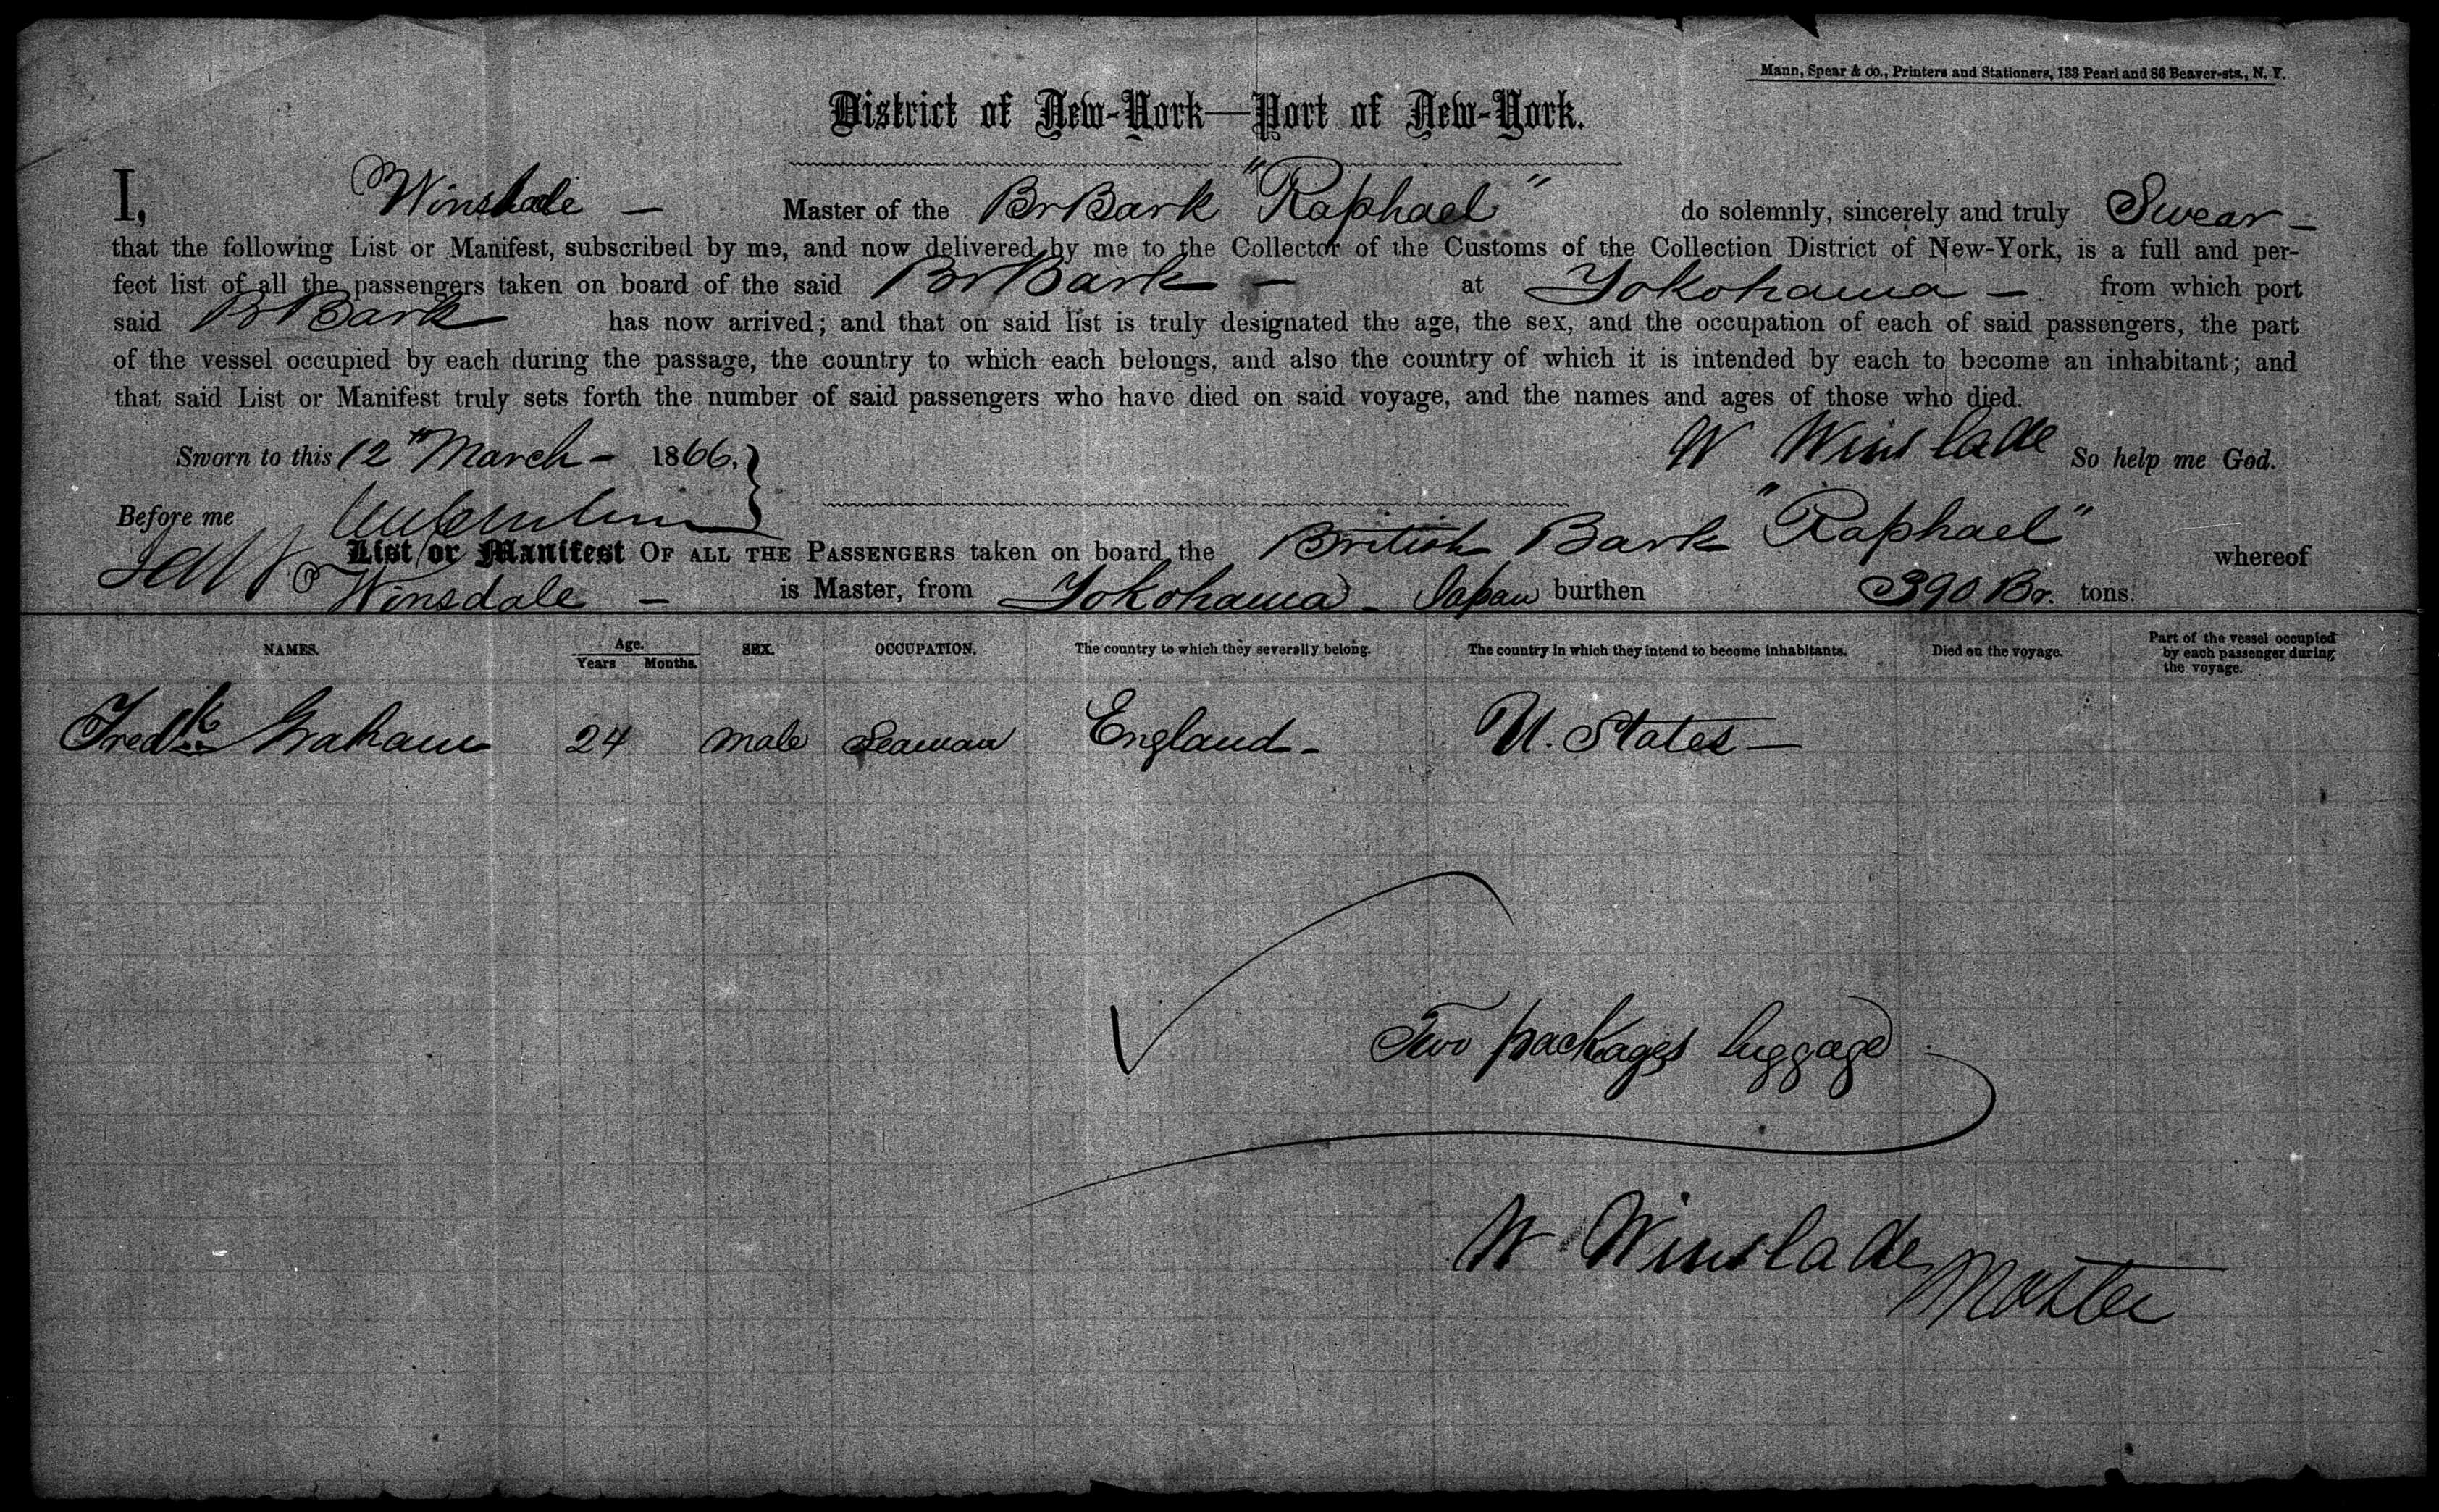 Mann, Spear & co., Printers and Stationers, 133 Pearl and 86 Beaver-sts., N. Y.
District of New-York—Port of New-York.
I, Winslade — Master of the Br Bark "Raphael" do solemnly, sincerely and truly Swear —
that the following List or Manifest, subscribed by me, and now delivered by me to the Collector of the Customs of the Collection District of New-York, is a full and per-
fect list of all the passengers taken on board of the said Br Bark — at Yokohama — from which port
said Br Bark has now arrived; and that on said list is truly designated the age, the sex, and the occupation of each of said passengers, the part
of the vessel occupied by each during the passage, the country to which each belongs, and also the country of which it is intended by each to become an inhabitant; and
that said List or Manifest truly sets forth the number of said passengers who have died on said voyage, and the names and ages of those who died.
Sworn to this 12th March — 1866. W Winslade So help me God.
Before me
List or Manifest OF ALL THE PASSENGERS taken on board the British Bark "Raphael" whereof
Winsdale — is Master, from Yokohama — Japan burthen 390 Br. tons.
NAMES. Age. Years Months. SEX. OCCUPATION. The country to which they severally belong. The country in which they intend to become inhabitants. Died on the voyage. Part of the vessel occupied by each passenger during the voyage.
Fredk Graham 24 male Seaman England — U. States —
Two packages luggage
W Winslade Master